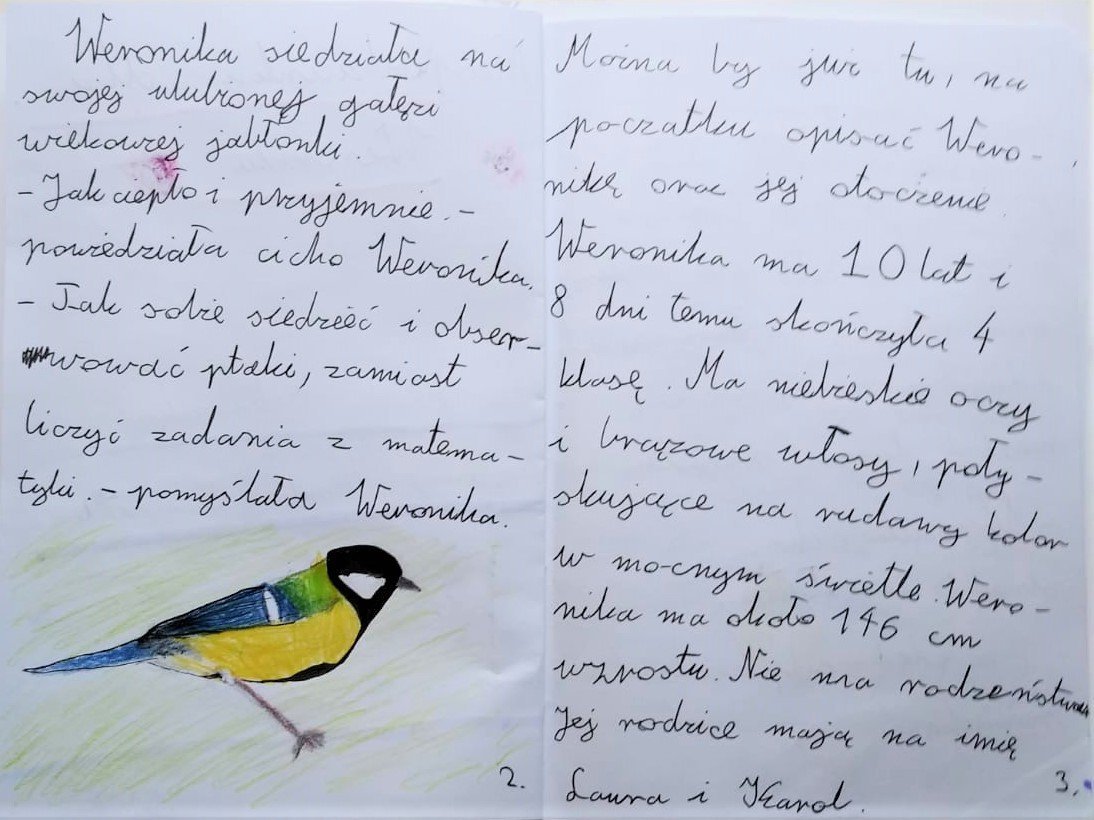 Weronika siedziała na
swojej ulubionej gałęzi
wiekowej jabłonki.
- Jak ciepło i przyjemnie. -
powiedziała cicho Weronika.
- Jak sobie siedzieć i obser-
wować ptaki, zamiast
liczyć zadania z matema-
tyki. - pomyślała Weronika.
2.
Można by już tu, na
początku opisać Wero-
nikę oraz jej otoczenie.
Weronika ma 10 lat i
8 dni temu skończyła 4
klasę. Ma niebieskie oczy
i brązowe włosy, poły-
skujące na rudawy kolor
w mocnym świetle. Wero-
nika ma około 146 cm
wzrostu. Nie ma rodzeństwa
Jej rodzice mają na imię
Laura i Karol.
3.